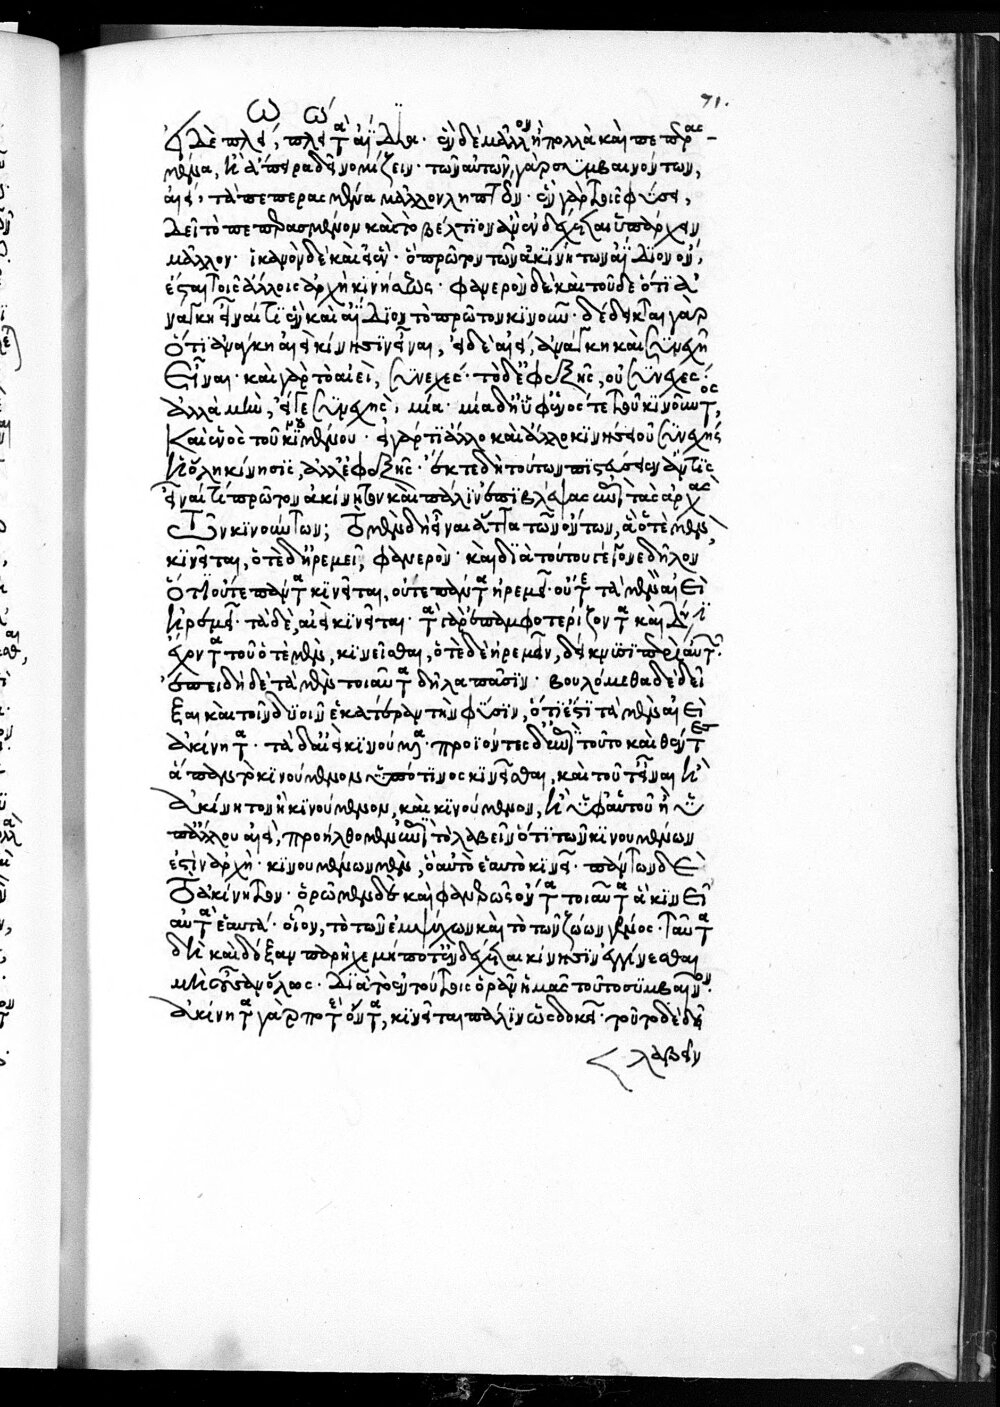 εἰ δὲ πλείω, πλείω τὰ ἀΐδια· ἓν δὲ μᾶλλον ἢ πολλὰ καὶ πεπερας-
μένα, ἢ ἄπειρα δεῖ νομίζειν· τῶν αὐτῶν γὰρ συμβαινόντων,
ἀεὶ, τὰ πεπερασμένα μᾶλλον ληπτέον· ἐν γὰρ τοῖς φύσει,
δεῖ τὸ πεπερασμένον καὶ τὸ βέλτιον ἂν ἐνδέχηται ὑπάρχειν
μᾶλλον· ἱκανὸν δὲ καὶ εἰ ἕν· ὃ πρῶτον τῶν ἀκινήτων ἀΐδιον ὄν,
ἔσται τοῖς ἄλλοις ἀρχὴ κινήσεως· φανερὸν δὲ καὶ τοῦδε ὅτι ἀ
νάγκη εἶναί τι ἓν καὶ ἀΐδιον τὸ πρῶτον κινοῦν· δέδεικται γὰρ
ὅτι ἀνάγκη ἀεὶ κίνησιν εἶναι, εἰ δὲ ἀεί, ἀνάγκη καὶ συνεχῆ
εἶναι· καὶ γὰρ τὸ αἰεὶ, συνεχές· τὸ δ' ἐφεξῆς, οὐ συνεχές·
ἀλλὰ μὴν, εἴ γε συνεχὴς, μία· μία δ' ἡ ὑφ' ἑνός τε τοῦ κινοῦντος,
καὶ ἑνὸς τοῦ κινουμένου· εἰ γάρ τι ἄλλο καὶ ἄλλο κινήσει οὐ συνεχὴς
ἡ ὅλη κίνησις, ἀλλ' ἐφεξῆς· ἔκ τε δὴ τούτων πιστεύσειεν ἄν τις
εἶναί τι πρῶτον ἀκίνητον καὶ πάλιν ἐπιβλέψας ἐπὶ τὰς ἀρχὰς
τῶν κινούντων; τὸ μὲν δὴ εἶναι ἄττα τῶν ὄντων, ἃ ὁτὲ μὲν,
κινεῖται, ὁτὲ δὲ ἠρεμεῖ, φανερὸν· καὶ διὰ τούτου γέγονε δῆλον
ὅτι οὔτε πάντα κινεῖται, οὔτε πάντα ἠρεμεῖ· οὔτε τὰ μὲν ἀεὶ
ἠρεμεῖ· τὰ δὲ, ἀεὶ κινεῖται· τὰ γὰρ ἐπαμφοτερίζοντα καὶ δύναμιν
ἔχοντα τοῦ ὁτὲ μὲν, κινεῖσθαι, ὁτὲ δὲ ἠρεμεῖν, δείκνυσι περὶ αὐτῶν·
ἐπειδὴ δὲ τὰ μὲν τοιαῦτα δῆλα πᾶσιν· βουλόμεθα δὲ δεῖ
ξαι καὶ τοῖν δυοῖν ἑκατέραν τὴν φύσιν, ὅτι ἐστὶ τὰ μὲν ἀεὶ
ἀκίνητα· τὰ δ' ἀεὶ κινούμενα· προϊόντες δ' ἐπὶ τοῦτο καὶ θέντες
ἅπαν τὸ κινούμενον ὑπό τινος κινεῖσθαι, καὶ τοῦτ' εἶναι ἢ
ἀκίνητον ἢ κινούμενον, καὶ κινούμενον, ἢ ὑφ' αὑτοῦ ἢ ὑ
π' ἄλλου ἀεὶ, προήλθομεν ἐπὶ τὸ λαβεῖν ὅτι τῶν κινουμένων
ἐστὶν ἀρχὴ· κινουμένων μὲν, ὃ αὐτὸ ἑαυτὸ κινεῖ· πάντων δὲ
τὸ ἀκίνητον· ὁρῶμεν δὲ καὶ φανερῶς ὄντα τοιαῦτα ἃ κινεῖ
αὐτὰ ἑαυτά· οἷον, τὸ τῶν ἐμψύχων καὶ τὸ τῶν ζώων γένος· ταῦτα
δὴ καὶ δόξαν παρεῖχε μήποτε ἐνδέχεται κίνησιν ἐγγίνεσθαι
μὴ οὖσαν ὅλως· διὰ τὸ ἐν τούτοις ὁρᾶν ἡμᾶς τοῦτο συμβαῖνον·
ἀκίνητα γάρ ποτε ὄντα, κινεῖται πάλιν ὡς δοκεῖ· τοῦτο δὲ δεῖ
λαβεῖν
71.